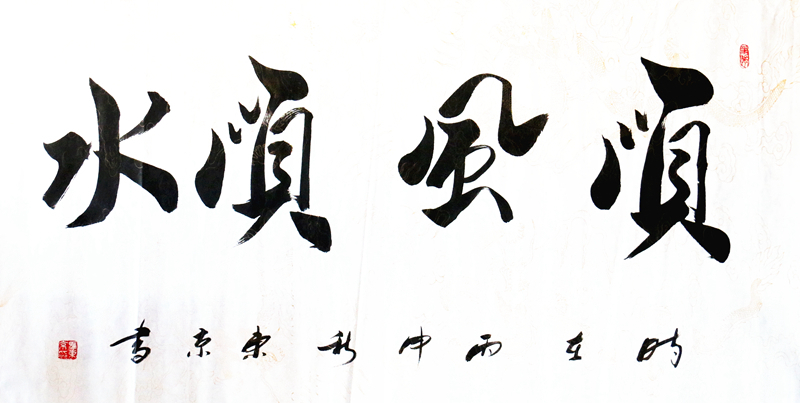 順風順水
時在丙申秋東京書